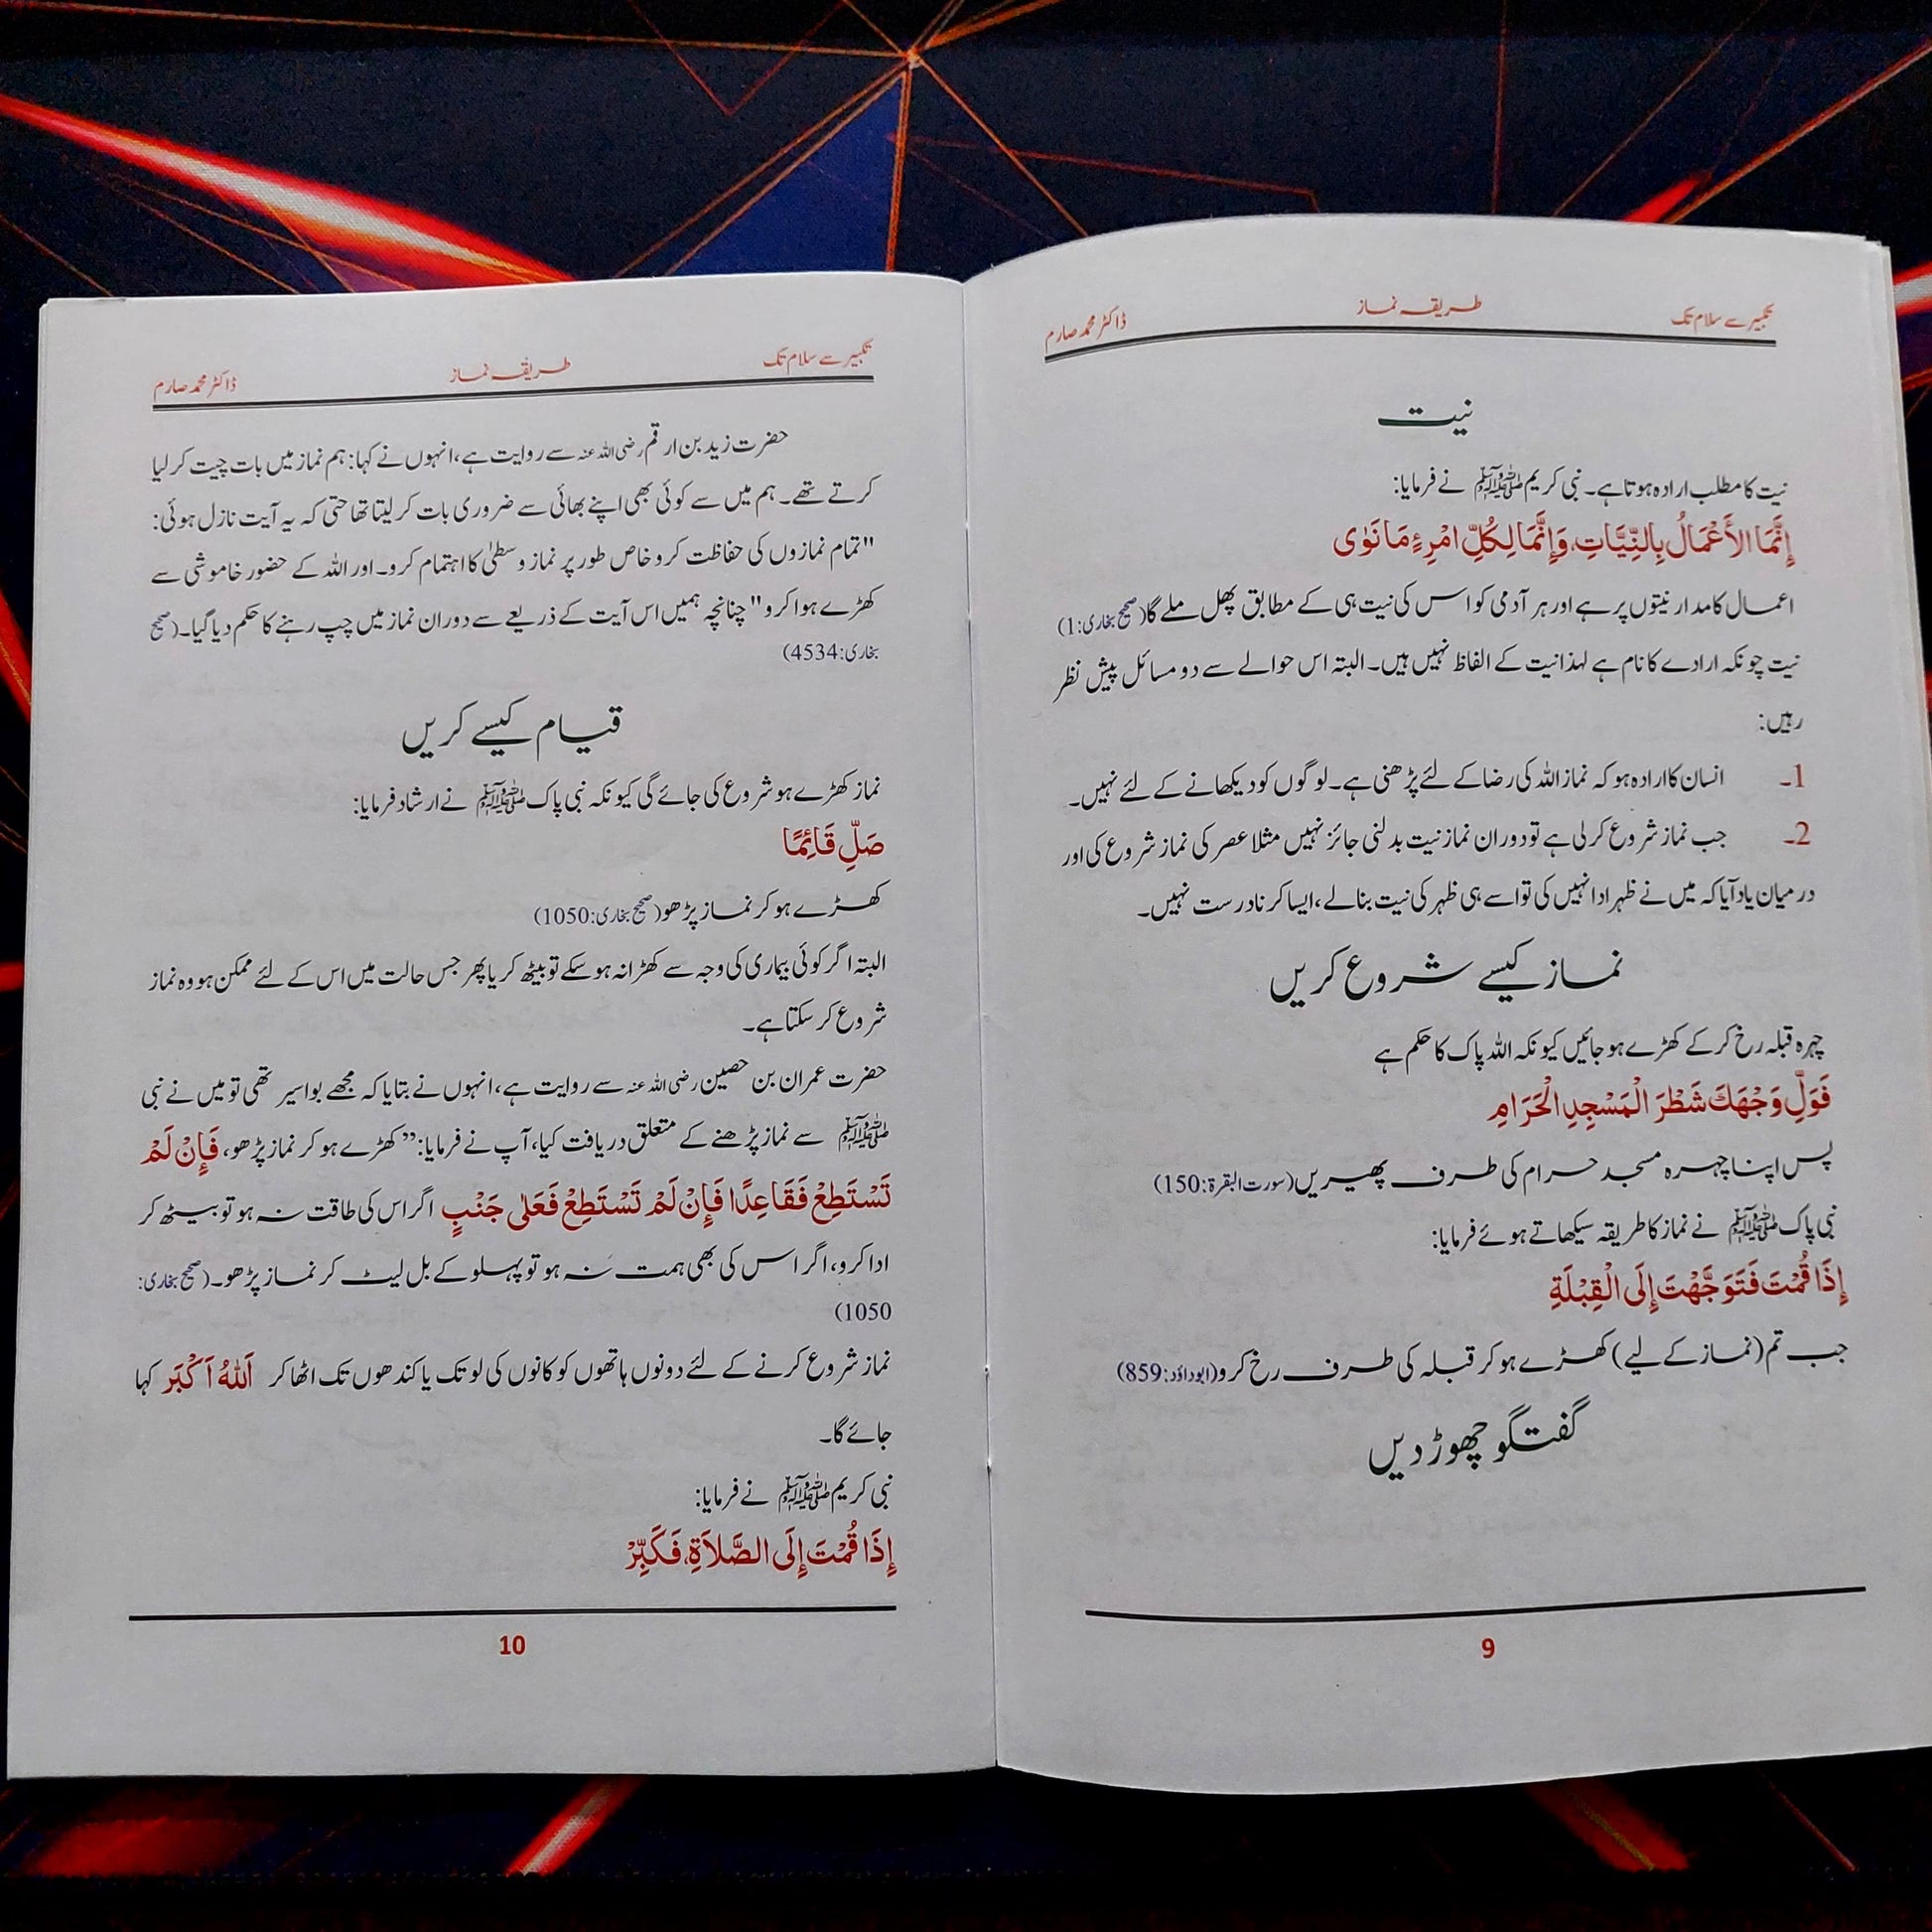 تکبیر سے سلام تک طریقہ نماز ڈاکٹر محمد صارم
نیت
نیت کا مطلب ارادہ ہوتا ہے۔ نبی کریم ﷺ نے فرمایا:
إِنَّمَا الأَعْمَالُ بِالنِّيَّاتِ، وَإِنَّمَا لِكُلِّ امْرِءٍ مَا نَوٰى
اعمال کا مدار نیتوں پر ہے اور ہر آدمی کو اس کی نیت ہی کے مطابق پھل ملے گا (صحیح بخاری:1)
نیت چونکہ ارادے کا نام ہے لہذا نیت کے الفاظ نہیں ہیں۔ البتہ اس حوالے سے دو مسائل پیش نظر
رہیں:
1۔ انسان کا ارادہ ہو کہ نماز اللہ کی رضا کے لئے پڑھنی ہے۔ لوگوں کو دیکھانے کے لئے نہیں۔
2۔ جب نماز شروع کر لی ہے تو دوران نماز نیت بدلنی جائز نہیں مثلا عصر کی نماز شروع کی اور
درمیان یاد آیا کہ میں نے ظہر ادا نہیں کی تو اسے ہی ظہر کی نیت بنا لے، ایسا کرنا درست نہیں۔
نماز کیسے شروع کریں
چہرہ قبلہ رخ کر کے کھڑے ہو جائیں کیونکہ اللہ پاک کا حکم ہے
فَوَلِّ وَجْهَكَ شَطْرَ الْمَسْجِدِ الْحَرَامِ
پس اپنا چہرہ مسجد حرام کی طرف پھیریں (سورت البقرة:150)
نبی پاک ﷺ نے نماز کا طریقہ سیکھاتے ہوئے فرمایا:
إِذَا قُمْتَ فَتَوَجَّهْتَ إِلَى الْقِبْلَةِ
جب تم (نماز کے لیے) کھڑے ہو کر قبلہ کی طرف رخ کرو (ابو داؤد:859)
گفتگو چھوڑ دیں
9
تکبیر سے سلام تک طریقہ نماز ڈاکٹر محمد صارم
حضرت زید بن ارقم رضی اللہ عنہ سے روایت ہے، انہوں نے کہا: ہم نماز میں بات چیت کر لیا
کرتے تھے۔ ہم میں سے کوئی بھی اپنے بھائی سے ضروری بات کر لیتا تھا حتی کہ یہ آیت نازل ہوئی:
"تمام نمازوں کی حفاظت کرو خاص طور پر نماز وسطیٰ کا اہتمام کرو۔ اور اللہ کے حضور خاموشی سے
کھڑے ہوا کرو" چنانچہ ہمیں اس آیت کے ذریعے سے دوران نماز میں چپ رہنے کا حکم دیا گیا۔ (صحیح
بخاری:4534)
قیام کیسے کریں
نماز کھڑے ہو شروع کی جائے گی کیونکہ نبی پاک ﷺ نے ارشاد فرمایا:
صَلِّ قَائِمًا
کھڑے ہو کر نماز پڑھو (صحیح بخاری:1050)
البتہ اگر کوئی بیماری کی وجہ سے کھڑا نہ ہو سکے تو بیٹھ کر یا پھر جس حالت میں اس کے لئے ممکن ہو وہ نماز
شروع کر سکتا ہے۔
حضرت عمران بن حصین رضی اللہ عنہ سے روایت ہے، انہوں نے بتایا کہ مجھے بواسیر تھی تو میں نے نبی
ﷺ سے نماز پڑھنے کے متعلق دریافت کیا، آپ نے فرمایا: ”کھڑے ہو کر نماز پڑھو، فَإِنْ لَمْ
تَسْتَطِعْ فَقَاعِدًا فَإِنْ لَمْ تَسْتَطِعْ فَعَلٰى جَنْبٍ اگر اس کی طاقت نہ ہو تو بیٹھ کر
ادا کرو، اگر اس کی بھی ہمت نہ ہو تو پہلو کے بل لیٹ کر نماز پڑھو۔ (صحیح بخاری:
1050)
نماز شروع کرنے کے لئے دونوں ہاتھوں کو کانوں کی لو تک یا کندھوں تک اٹھا کر اَللهُ اَكْبَر کہا
جائے گا۔
نبی کریم ﷺ نے فرمایا:
إِذَا قُمْتَ إِلَى الصَّلاَةِ، فَكَبِّرْ
10